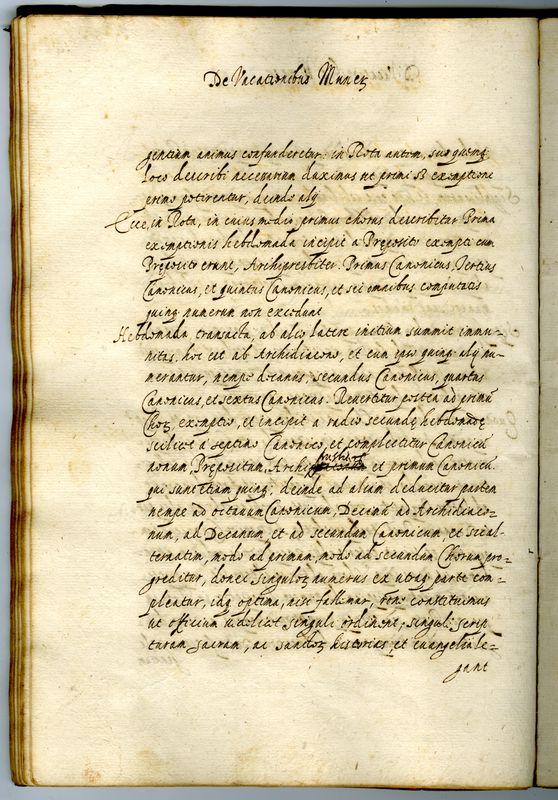 De Vacationibus Munerꝝ
gentium animus confunderetur: in Rota autem, suo quemqꝫ
loco describi necessarium duximus ut primi exemptione
primo potirentur, deinde alij
Ecce, in Rota, in cuius medio primus chorus describitur Prima
exemptionis hebdomada incipit a Preposito exempti cum
Preposito erunt, Archipresbiter. Primus Canonicus, Tertius
Canonicus, et quintus Canonicus, et sei omnibus computatis
quinqꝫ numerum non excedunt
Hebdomada transacta, ab alio latere initium summit immu-
nitas, hoc est ab Archidiacono, et cum ipso quinqꝫ alij nu-
merantur, nempe decanus, secundus Canonicus, quartus
Canonicus, et sextus Canonicus. Revertitur postea ad primū
Chorꝝ exemptio, et incipit a radio secundę hebdomadę
scilicet a septimo Canonico, et complectitur Canonicū
nonum, Prępositum, Archi et primum Canonicū.
qui sunt etiam quinqꝫ; deinde ad aliam deducitur partem
nempe ad octavum Canonicum, Decimū ad Archidiaco-
num, ad Decanum, et ad secundum Canonicum, et sic al-
ternatim, modo ad primum, modo ad secundum Chorum pro-
greditur, donec singulorꝝ numerus ex utraqꝫ parte com-
pleantur, idqꝫ optima, nisi fallimur, rone constituimus
ut officium videlicet singuli ordinent, singuli scrip-
turam sacram, ac sanctorꝝ historias et evangelia le-
gant